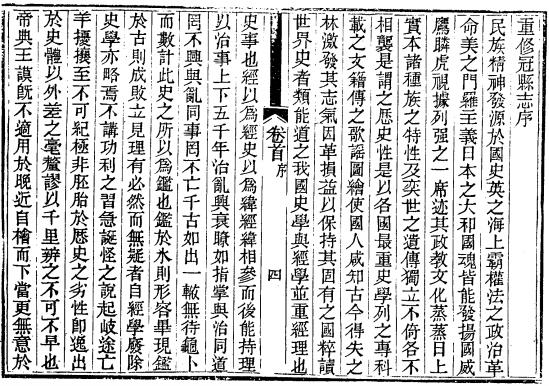 重修冠縣志序
民族精神發源於國史英之海上霸權法之政治革
命美之門羅主義日本之大和國魂皆能發揚國威
鷹瞵虎視據列强之一席迹其政教文化蒸蒸日上
實本諸種族之特性及奕世之遺傳獨立不倚各不
相襲是謂之歷史性是以各國最重史學列之專科
載之文籍傳之歌謡圖繪使國人咸知古今得失之
林激發其志氣因革損益以保持其固有之國粹讀
世界史者類能道之我國史學與經學並重經理也
卷首 序 四
史事也經以爲經史以爲緯經緯相參而後能持理
以治事上下五千年治亂興衰瞭如指掌與治同道
罔不興與亂同事罔不亡千古如出一轍無待龜卜
而數計此史之所以爲鑑也鑑於水則形容畢現鑑
於古則成敗立見理有必然而無疑者自經學廢除
史學亦略焉不講功利之習急誕怪之說起岐途亡
羊擾攘至不可紀極非胚胎於歷史之劣性卽逸出
於史體以外差之毫釐謬以千里辨之不可不早也
帝典王謨旣不適用於晚近自檜而下當更無意於